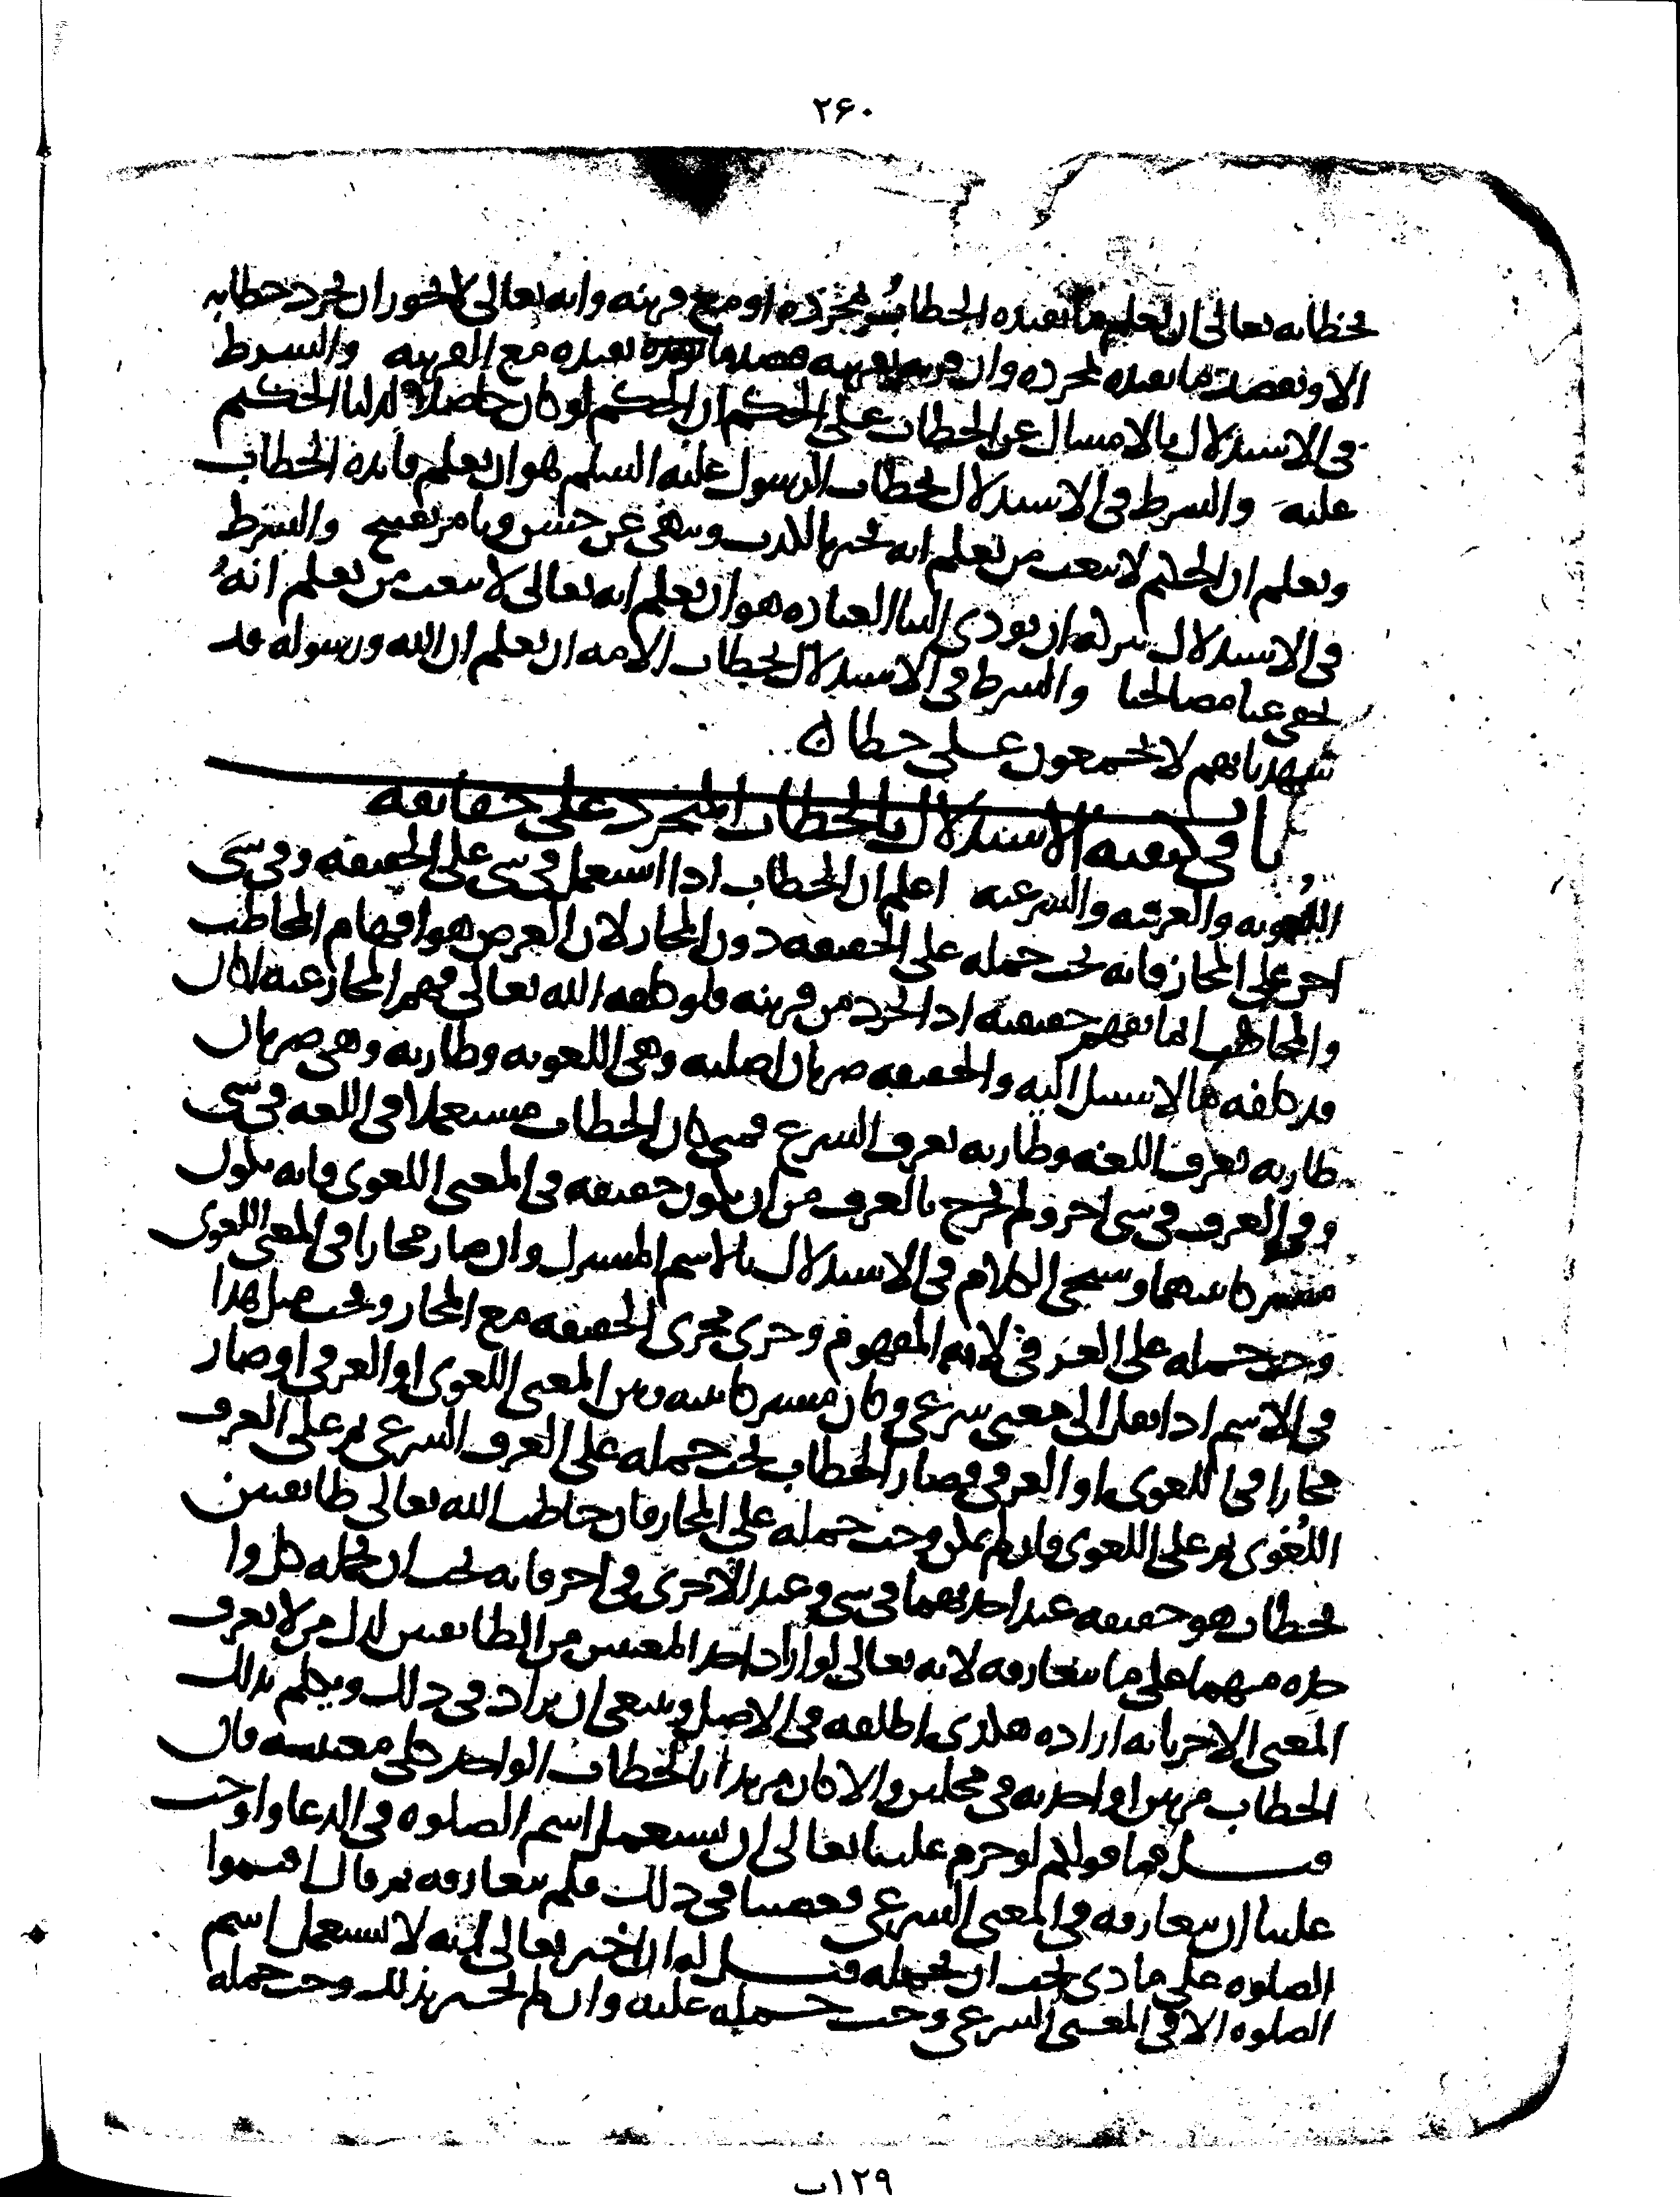 ٢۶٠
بخطابه تعالى ان يعلم ما يفيده الخطاب بمجرده او مع قرينه وانه تعالى لا يجوز ان يجرد خطابه
الا ويقصد ما يفيده بمجرده وان قرنه بقرينه قصد ما يفيده مع القرينه والشرط
فى الاستدلال بالامساك عن الخطاب على الحكم ان الحكم لو كان حاصلا لدلنا الحكيم
عليه والشرط فى الاستدلال بخطاب الرسول عليه السلم هو ان يعلم فايده الخطاب
ويعلم ان الحكيم لا يبعث من يعلم انه يخبر بالكذب وينهى عن حسن ويامر بقبيح والشرط
فى الاستدلال بترك ان يودى الينا العباده هو ان يعلم انه تعالى لا يبعث من يعلم انهُ
يخفى عنا مصالحنا والشرط فى الاستدلال بخطاب الامه ان يعلم ان الله ورسوله قد
شهد بانهم لا يجمعون على خطا
باب فى كيفيه الاستدلال بالخطاب المتجرد على حقايقه
اللغويه والعرفيه والشرعيه اعلم ان الخطاب اذا استعمل فى شى على الحقيقه وفى شى
اخر على المجاز فانه يجب حمله على الحقيقه دون المجاز لان الغرض هو افهام المخاطب
والمخاطب انما يفهم حقيقته اذا تجرد من قرينه فلو كلفه الله تعالى فهم المجاز عنه لكان
قد كلفه ما لا سبيل اليه والحقيقه ضربان اصليه وهى اللغويه وطاريه وهى ضربان
طاريه بعرف اللغه وطاريه بعرف الشرع فمتى كان الخطاب مستعملا فى اللغه فى شى
وفى العرف فى شى اخر ولم يخرج بالعرف من ان يكون حقيقه فى المعنى اللغوى فانه يكون
مشتركا بينهما وسيجى الكلام فى الاستدلال بالاسم المشترك وان صار مجازا فى المعنى اللغوى
وجب حمله على العرفى لانه المفهوم وجرى مجرى الحقيقه مع المجاز ويجب مثل هذا
فى الاسم اذا انتقل الى معنى شرعى وكان مشتركا بينه وبين المعنى اللغوى او العرفى او صار
مجازا فى اللغوى او العرفى فصار الخطاب يجب حمله على العرف الشرعى ثم على العرف
اللُغوى ثم على اللغوى فان لم يمكن وجب حمله على المجاز فان خاطب الله تعالى طايفتين
بخطاب هو حقيقه عند احديهما فى شى وعند الاخرى فى اخر فانه يجب ان يحمله كل وا
حده منهما على ما يتعارفه لانه تعالى لو اراد احد المعنيين من الطايفتين لدل من لا يعرف
المعنى الاخر بانه اراده هكذى اطلقه فى الاصل وينبغى ان يزاد فى ذلك ويكلم بذلك
الخطاب مرتين او احديه فى مجلس والا كان مريدا بالخطاب الواحد كلى معنييه فان
قيل فما قولكم لو حرم علينا تعالى ان نستعمل اسم الصلوه فى الدعا واوجب
علينا ان نتعارفه فى المعنى الشرعى فعصينا فى ذلك فلم نتعارفه ثم قال اقيموا
الصلوه على ماذى يجب ان نحمله قيل له ان اخبر تعالى انه لا يستعمل اسم
الصلوه الا فى المعنى الشرعى وجب حمله عليه وان لم يخبر بذلك وجب حمله
١٢٩ب